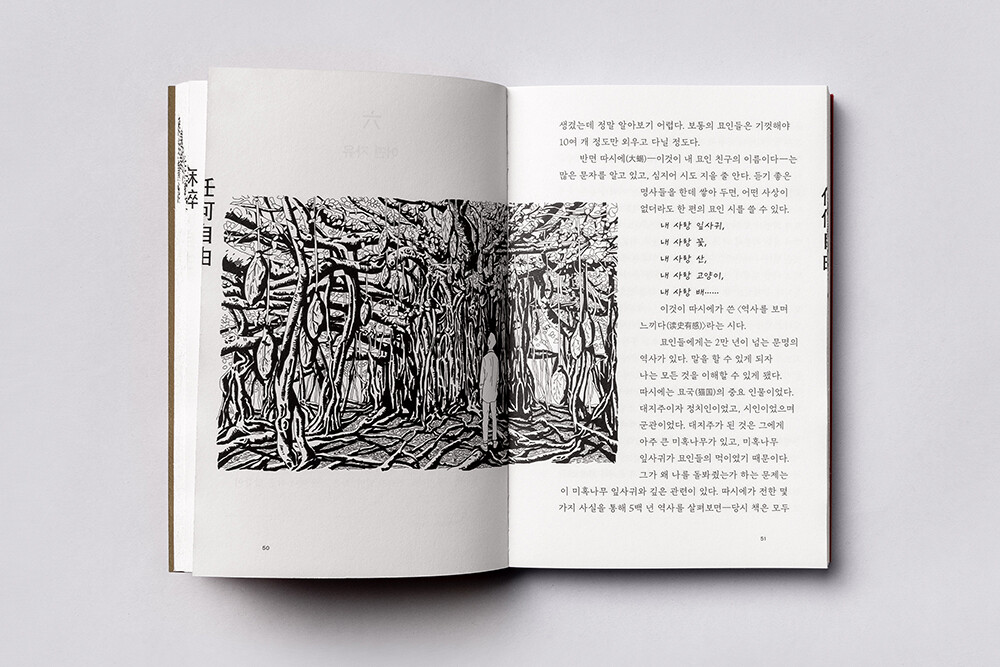 任可自由
생겼는데 정말 알아보기 어렵다. 보통의 묘인들은 기껏해야
10여 개 정도만 외우고 다닐 정도다.
반면 따시에(大蝎)—이것이 내 묘인 친구의 이름이다—는
많은 문자를 알고 있고, 심지어 시도 지을 줄 안다. 듣기 좋은
명사들을 한데 쌓아 두면, 어떤 사상이
없더라도 한 편의 묘인 시를 쓸 수 있다.
내 사랑 잎사귀,
내 사랑 꽃,
내 사랑 산,
내 사랑 고양이,
내 사랑 배……
이것이 따시에가 쓴 〈역사를 보며
느끼다(读史有感)〉라는 시다.
묘인들에게는 2만 년이 넘는 문명의
역사가 있다. 말을 할 수 있게 되자
나는 모든 것을 이해할 수 있게 됐다.
따시에는 묘국(猫国)의 중요 인물이었다.
대지주이자 정치인이었고, 시인이었으며
군관이었다. 대지주가 된 것은 그에게
아주 큰 미혹나무가 있고, 미혹나무
잎사귀가 묘인들의 먹이였기 때문이다.
그가 왜 나를 돌봐줬는가 하는 문제는
이 미혹나무 잎사귀와 깊은 관련이 있다. 따시에가 전한 몇
가지 사실을 통해 5백 년 역사를 살펴보면—당시 책은 모두
50
51